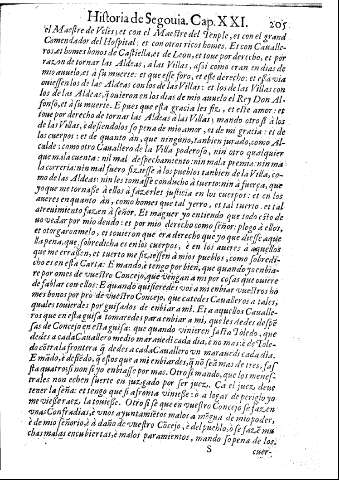 Historia de Segouia. Cap. XXI. 205
el Maestre de Vcles, et con el Maestre del Temple, et con el grand
Comendador del Hospital: et con otros ricos homes. Et con Caualle-
ros, et homes bonos de Castiella, et de Leon, et toue por derecho, et por
razon de tornar las Aldeas, a las Villas, assi como eran en dias de
mio auuelo, et à su muerte: et que esse foro, et esse derecho: et essa via
ouiessen los de las Aldeas con los de las Villas: et los de las Villas con
los de las Aldeas: q̃ ouieron en los dias de mio auuelo el Rey Don Al-
fonso, et à su muerte. E pues que esta gracia les fiz, et este amor: et
toue por derecho de tornar las Aldeas à las Villas; mando otrosi à los
de las Villas, è defiendolos so pena de mio amor, et de mi gracia: et de
los cuerpos: et de quanto àn, que ninguno, tambien jurado, como Al-
calde: como otro Cauallero de la Villa poderoso, nin otro qualquier
que mala cuenta: nil mal despechamiento: nin mala premia: nin ma-
la correria: nin mal fuero fiziesse à los pueblos tambien de la Villa, co-
mo de las Aldeas: nin les tomasse conducho à tuerto: nin à fuerça, que
yo que me tornasse à ellos à fazerles justicia en los cuerpos: et en los
aueres en quanto àn, como homes que tal yerro, et tal tuerto: et tal
atreuimiento fazen à señor. Et maguer yo entiendo que todo esto de
uo vedar por mio dendo: et por mio derecho como señor: plogo à ellos,
et otorgaronmelo, et touieron que era derecho que yo que diesse aque
lla pena, que sobredicha es en los cuerpos, è en los aueres à aquellos
que me errassen, et tuerto me fiziessen à mios pueblos, como sobredi-
cho es en esta Carta: E mando, è tengo por bien, que quando yo enbia-
re por omes de vuestro Concejo, que vengan a mi por cosas que ouiere
de fablar con ellos: E quando quisieredes vos à mi embiar vuestros ho
mes bonos por pro de vuestro Concejo, que catedes Caualleros à tales,
quales touierdes por guisados de enbiar a mi. Et a aquellos Caualle-
ros que en esta guisa tomaredes para enbiar a mi, que les dedes despẽ
sas de Concejo en esta guisa: que quando vinieren fasta Toledo, que
dedes a cada Cauallero medio marauedi cada dia, è no mas: è de Tole-
do cõtra la frontera q̃ dedes a cada Cauallero vn marauedi cada dia.
E mãdo, è defiẽdo, q̃ estos que a mi enbiardes, q̃ nõ seã mas de tres, fas
sta quatro, si non si yo enbiasse por mas. Otrosi mando, que los menes-
trales non echen suerte en juzgado por ser juez. Ca el juez deue
tener la seña: et tengo que si afronta viniesse, ò a logar de periglo yo
me viesse raez, la touiesse. Otro si sè que en vuestro Concejo se fazen
vnas Confradias, è vnos ayuntamiẽtos malos a mẽgua de mio poder,
è de mio señorio, è à daño de vuestro Cõcejo, è del pueblo, ò se fazẽ mu
chas malas encubiertas, è malos paramientos, mando so pena de los
S
cuer-